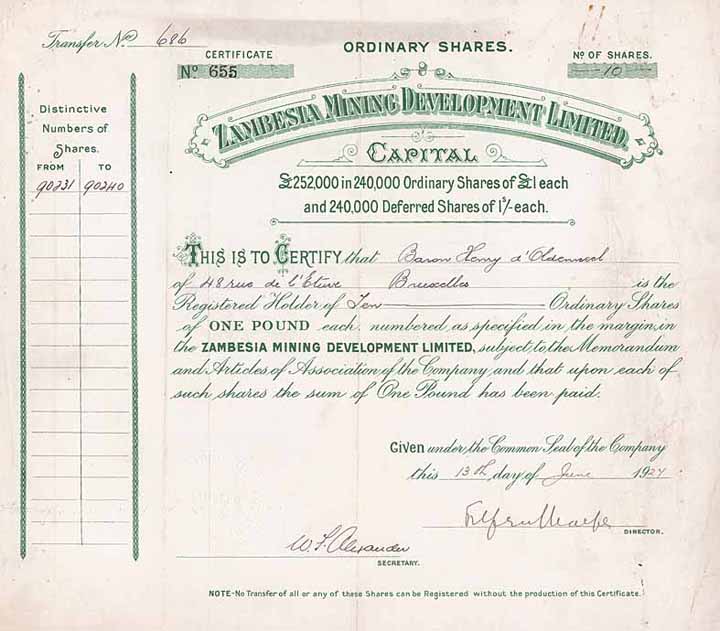 Transfer No 686
CERTIFICATE
ORDINARY SHARES.
No OF SHARES.
No 655
10
ZAMBESIA MINING DEVELOPMENT LIMITED.
CAPITAL
£252,000 in 240,000 Ordinary Shares of £1 each
and 240,000 Deferred Shares of 1s/- each.
Distinctive
Numbers of
Shares.
FROM TO
90231 90240
THIS IS TO CERTIFY that Baron Henry d'
of 48 rue de l'Etuve Bruxelles is the
Registered Holder of Ten Ordinary Shares
of ONE POUND each numbered as specified in the margin, in
the ZAMBESIA MINING DEVELOPMENT LIMITED, subject to the Memorandum
and Articles of Association of the Company and that upon each of
such shares the sum of One Pound has been paid.
Given under the Common Seal of the Company
this 13th day of June 1927
DIRECTOR.
W. F. Alexander
SECRETARY.
NOTE-No Transfer of all or any of these Shares can be Registered without the production of this Certificate.